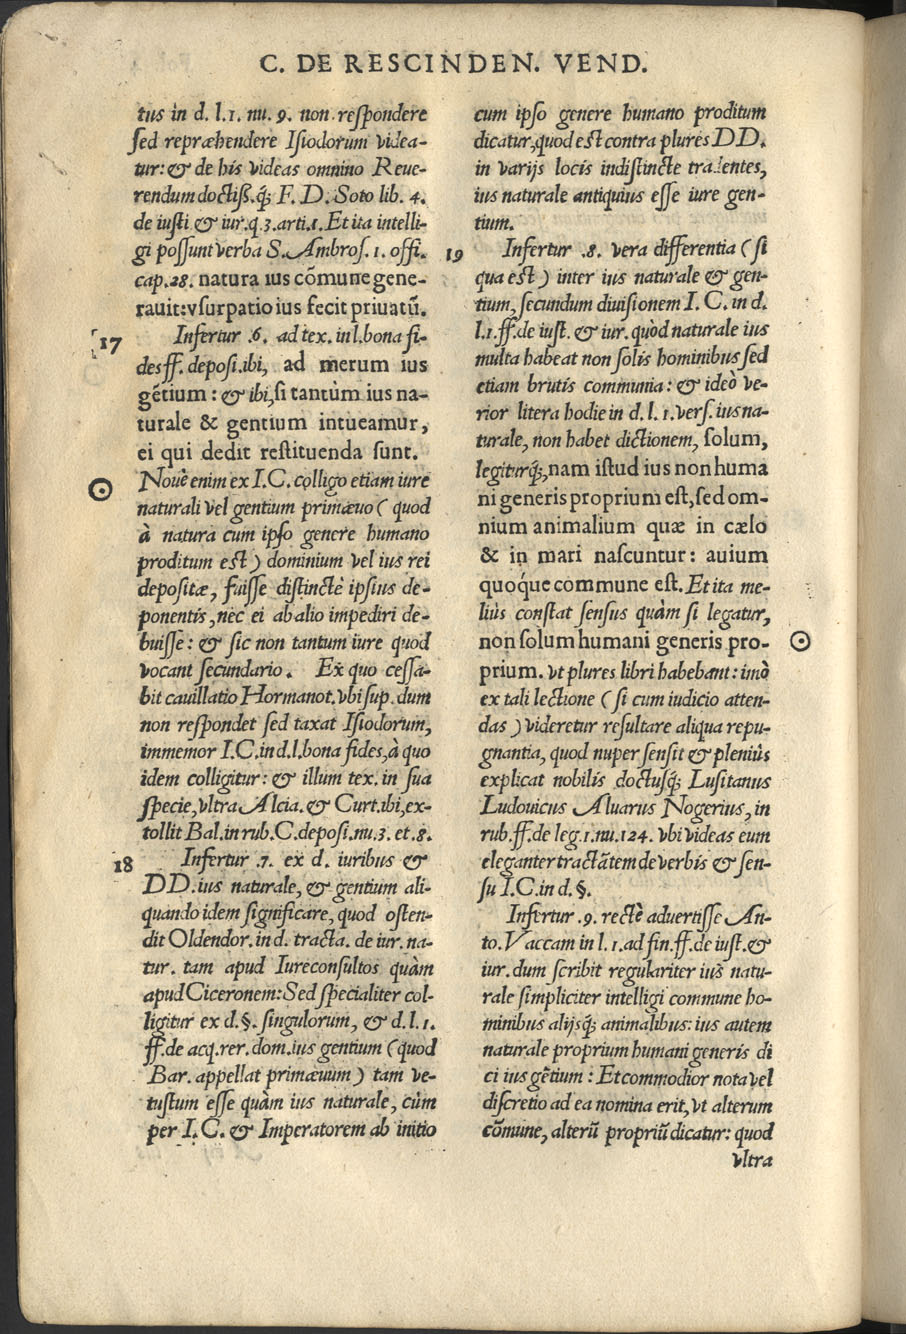 C. DE RESCINDEN. VEND.
tus in d. l.1. nu. 9. non respondere
sed repræhendere Isiodorum videa-
tur: & de his videas omnino Reue-
rendum doctiss.q́; F. D. Soto lib. 4.
de iusti & iur.q.3.arti.1. Et ita intelli-
gi possunt verba S. Ambros. 1. offi.
cap.28. natura ius cõmune gene-
rauit: vsurpatio ius fecit priuatũ.
17
Infertur .6. ad tex. in l. bona fi-
des ff. deposi. ibi, ad merum ius
gẽtium: & ibi, si tantùm ius na-
turale & gentium intueamur,
ei qui dedit restituenda sunt.
Nouè enim ex I.C. colligo etiam iure
naturali vel gentium primæuo ( quod
à natura cum ipso genere humano
proditum est ) dominium vel ius rei
depositæ, fuisse distinctè ipsius de-
ponentis, nec ei ab alio impediri de-
buisse: & sic non tantum iure quod
vocant secundario. Ex quo cessa-
bit cauillatio Hormanot. vbi sup. dum
non respondet sed taxat Isiodorum,
immemor I.C. in d. l. bona fides, à quo
idem colligitur: & illum tex. in sua
specie, vltra Alcia. & Curt. ibi, ex-
tollit Bal. in rub. C. deposi. nu.3. et .8.
18
Infertur .7. ex d. iuribus &
DD. ius naturale, & gentium ali-
quando idem significare, quod osten-
dit Oldendor. in d. tracta. de iur. na-
tur. tam apud Iureconsultos quàm
apud Ciceronem: Sed specialiter col-
ligitur ex d. §. singulorum, & d. l. 1.
ff. de acq. rer. dom. ius gentium ( quod
Bar. appellat primæuum ) tam ve-
tustum esse quàm ius naturale, cùm
per I.C. & Imperatorem ab initio
cum ipso genere humano proditum
dicatur, quod est contra plures DD.
in varijs locis indistinctè tradentes,
ius naturale antiquius esse iure gen-
tium.
19
Infertur .8. vera differentia ( si
qua est ) inter ius naturale & gen-
tium, secundum diuisionem I. C. in d.
l.1.ff. de iust. & iur. quòd naturale ius
multa habeat non solis hominibus sed
etiam brutis communia: & ideò ve-
rior litera hodie in d. l. 1. vers. ius na-
turale, non habet dictionem, solum,
legiturq́;, nam istud ius non huma
ni generis proprium est, sed om-
nium animalium quæ in cælo
& in mari nascuntur: auium
quoq́ue commune est. Et ita me-
liùs constat sensus quàm si legatur,
non solum humani generis pro-
prium. vt plures libri habebant: imò
ex tali lectione ( si cum iudicio atten-
das ) videretur resultare aliqua repu-
gnantia, quod nuper sensit & pleniùs
explicat nobilis doctusq́; Lusitanus
Ludouicus Aluarus Nogerius, in
rub. ff. de leg. 1. nu. 124. vbi videas eum
eleganter tractãtem de verbis & sen-
su I.C. in d. §.
Infertur .9. rectè aduertisse An-
to. Vaccam in l. 1. ad fin. ff. de iust. &
iur. dum scribit regulariter ius natu-
rale simpliciter intelligi commune ho-
minibus alijsq́; animalibus: ius autem
naturale proprium humani generis di
ci ius gẽtium: Et commodior nota vel
discretio ad ea nomina erit, vt alterum
cõmune, alterũ propriũ dicatur: quod
vltra